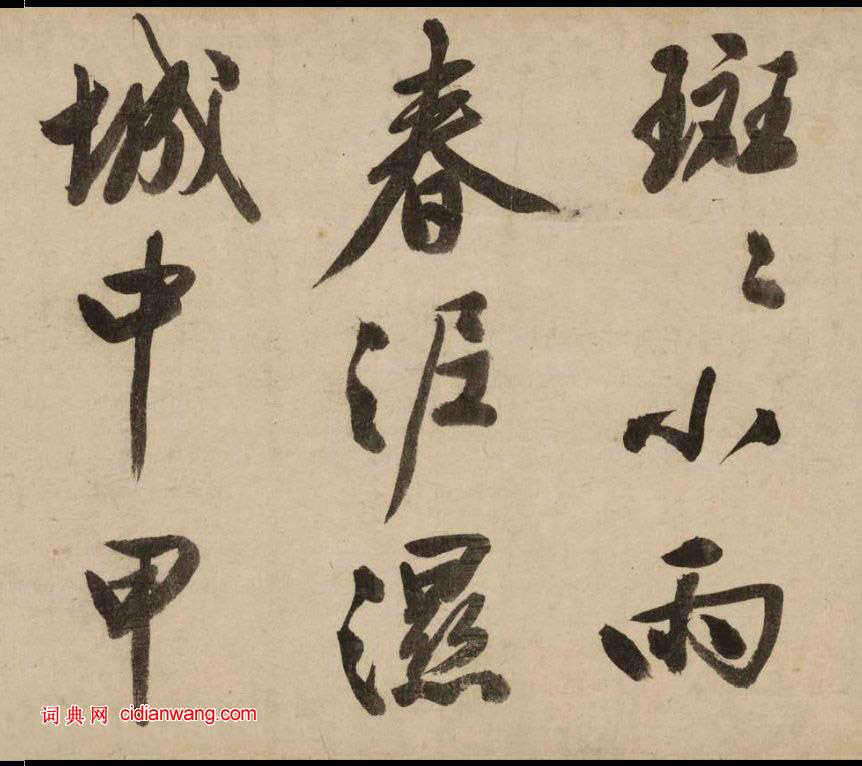 斑〻小雨
春泥濕
城中甲
词典网 cidianwang.com